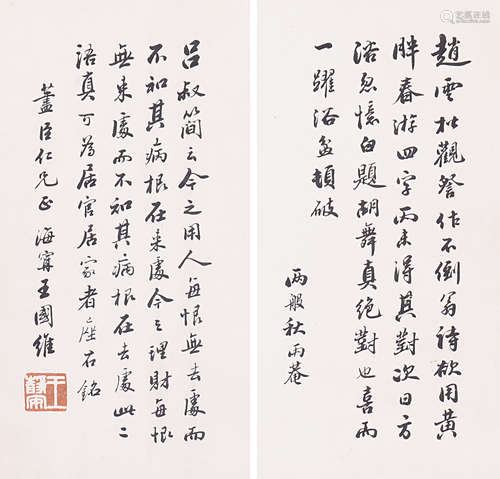 趙雲松觀詧作不倒翁詩欲用黃
胖春游四字而未得其對次日方
浴忽憶白題胡舞真絕對也喜而
一躍浴盆頓破
兩般秋雨菴
呂叔簡云今之用人每恨無去處而
不知其病根在来處今之理財每恨
無来處而不知其病根在去處此二
語真可為居官居家者座右銘
藎臣仁兄正 海甯王國維